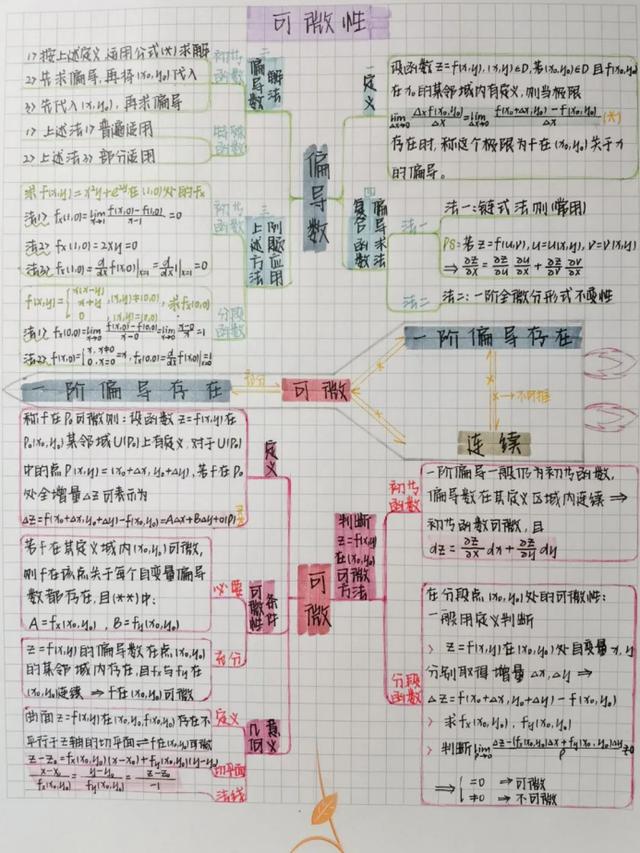 可微性
1> 按上述定义运用公式(*)求解
2> 先求偏导,再将(x₀,y₀)代入
3> 先代入(x₀,y₀),再求偏导
初等函数
1> 上述法1> 普遍适用
2> 上述法3> 部分适用
分段函数
二
偏导数
解法
一
定义
设函数z=f(x,y),(x,y)∈D,若(x₀,y₀)∈D且f(x,y₀)
在x₀的某邻域内有定义,则当极限
lim Δx→0 Δxf(x₀,y₀)/Δx = lim Δx→0 f(x₀+Δx,y₀)-f(x₀,y₀)/Δx (*)
存在时,称这个极限为f在(x₀,y₀)关于x
的偏导。
偏导数
求f(x,y)=x²y+e^(xy)在(1,0)处的fx
法1> fx(1,0)=lim x→1 f(x,0)-f(1,0)/x-1=0
法2> fx(1,0)=2xy=0
法3> fx(1,0)=d/dx f(x,0)|x=1=0
初等函数
f(x,y)= , (x,y)≠(0,0)
0 , (x,y)=(0,0) , 求fx(0,0)
法1> fx(0,0)=lim x→0 f(x,0)-f(0,0)/x-0=lim x→0 x-0/x-0=1
法2> f(x,0)={x, x≠0
0, x=0 =x, fx(0,0)=d/dx f(x,0)|=1
分段函数
三
上述方法
例题应用
四
复合函数
偏导求法
法一
法一:链式法则(常用)
PS:若z=f(u,v),u=u(x,y),v=v(x,y)
⇒ ∂z/∂x=∂z/∂u ∂u/∂x+∂z/∂v ∂v/∂x
法二
法二:一阶全微分形式不变性
一阶偏导存在
一阶偏导存在
充分
可微
不可推
连续
称f在P₀可微则:设函数z=f(x,y)在
P₀(x₀,y₀)某邻域U(P₀)上有定义,对于U(P₀)
中的点P(x,y)=(x₀+Δx,y₀+Δy),若f在P₀
处全增量Δz可表示为
Δz=f(x₀+Δx,y₀+Δy)-f(x₀,y₀)=AΔx+BΔy+o(ρ)
定义
若f在其定义域内(x₀,y₀)可微,
则f在该点关于每个自变量偏导
数都存在,且(**)中:
A=fx(x₀,y₀) , B=fy(x₀,y₀)
必要
z=f(x,y)的偏导数在点(x₀,y₀)
的某邻域内存在,且fx与fy在
(x₀,y₀)连续 ⇒ f在(x₀,y₀)可微
充分
可微性
条件
曲面z=f(x,y)在(x₀,y₀,f(x₀,y₀))存在不
平行于z轴的切平面⇌f在(x₀,y₀)可微
定义
z-z₀=fx(x₀,y₀)(x-x₀)+fy(x₀,y₀)(y-y₀)
切平面
x-x₀/fx(x₀,y₀)=y-y₀/fy(x₀,y₀)=z-z₀/-1
法线
几何
意义
可微
判断
z=f(x,y)
在(x₀,y₀)
可微
方法
初等函数
一阶偏导一般仍为初等函数,
偏导数在其定义区域内连续 ⇒
初等函数可微,且
dz=∂z/∂x dx+∂z/∂y dy
分段函数
在分段点(x₀,y₀)处的可微性:
一般用定义判断
> z=f(x,y)在(x₀,y₀)处自变量x,y
分别取得增量Δx,Δy ⇒
Δz=f(x₀+Δx,y₀+Δy)-f(x₀,y₀)
> 求fx(x₀,y₀),fy(x₀,y₀)
> 判断lim ρ→0 Δz-[fx(x₀,y₀)Δx+fy(x₀,y₀)Δy]/ρ
⇒ {=0 ⇒可微
≠0 ⇒不可微